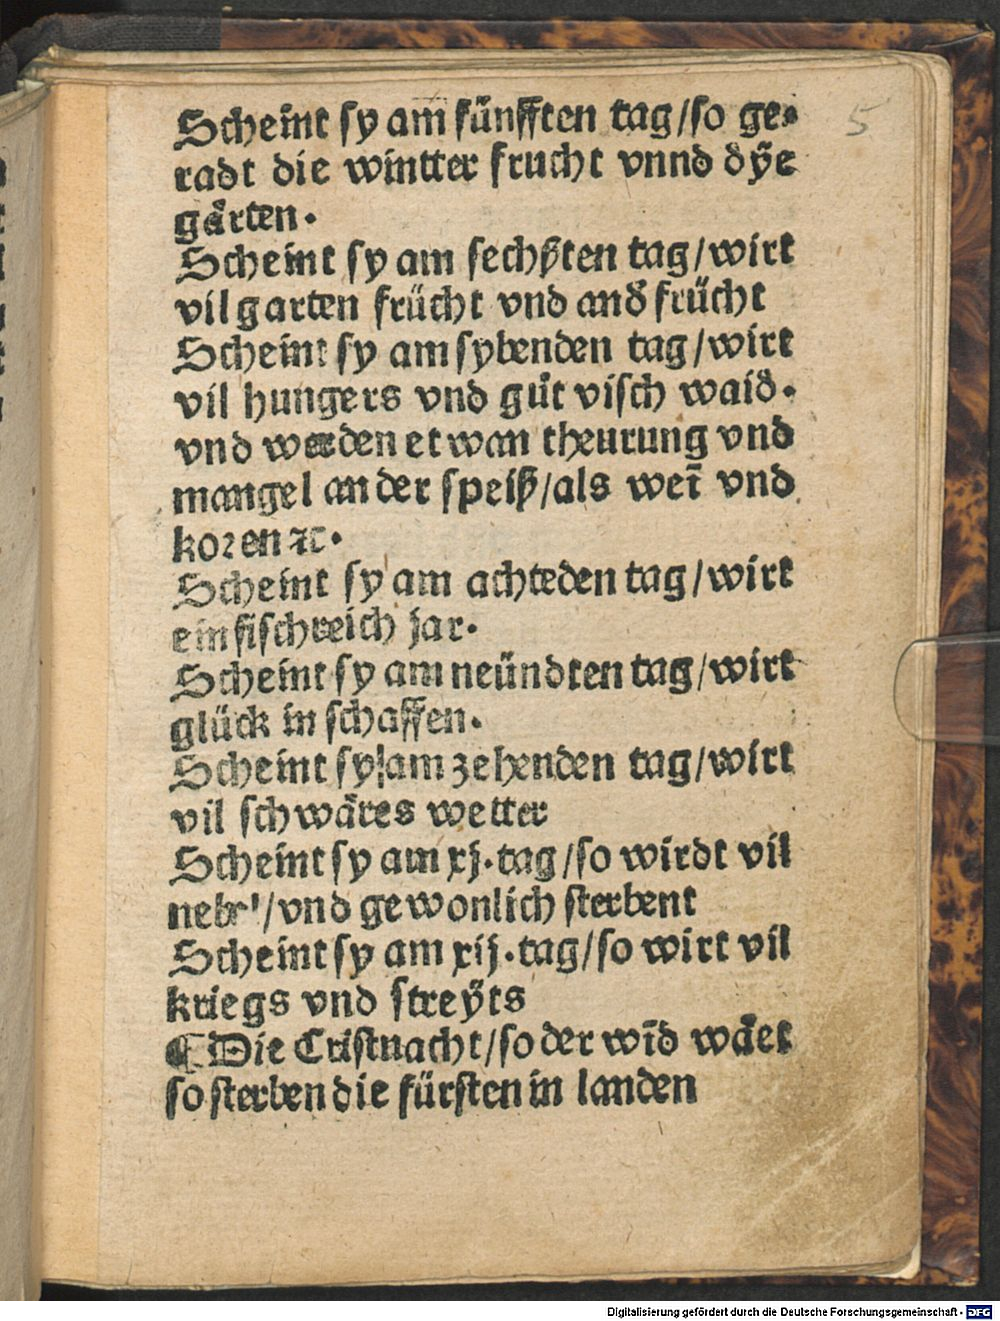 Scheint sy am fünfften tag/so ge⸗
radt die wintter frucht vnnd dÿe
gärten.
Scheint sy am sechßten tag/wirt
vil garten frücht vnd and̕ frücht
Scheint sy am sybenden tag/wirt
vil hungers vnd gůt visch waid.
vnd werden etwan theurung vnd
mangel an der speiß/als wei̅ vnd
koren ⁊c.
Scheint sy am achteden tag/wirt
ein fischreich jar.
Scheint sy am neündten tag/wirt
glück in schaffen.
Scheint sy am zehenden tag/wirt
vil schwäres wetter
Scheint sy am xj.tag/so wirdt vil
nebel/vnd gewonlich sterbent
Scheint sy am xij.tag/so wirt vil
kriegs vnd streÿts
¶ Die Cristnacht/so der wi̅d wäet
so sterben die fürsten in landen
5
Digitalisierung gefördert durch die Deutsche Forschungsgemeinschaft - DFG